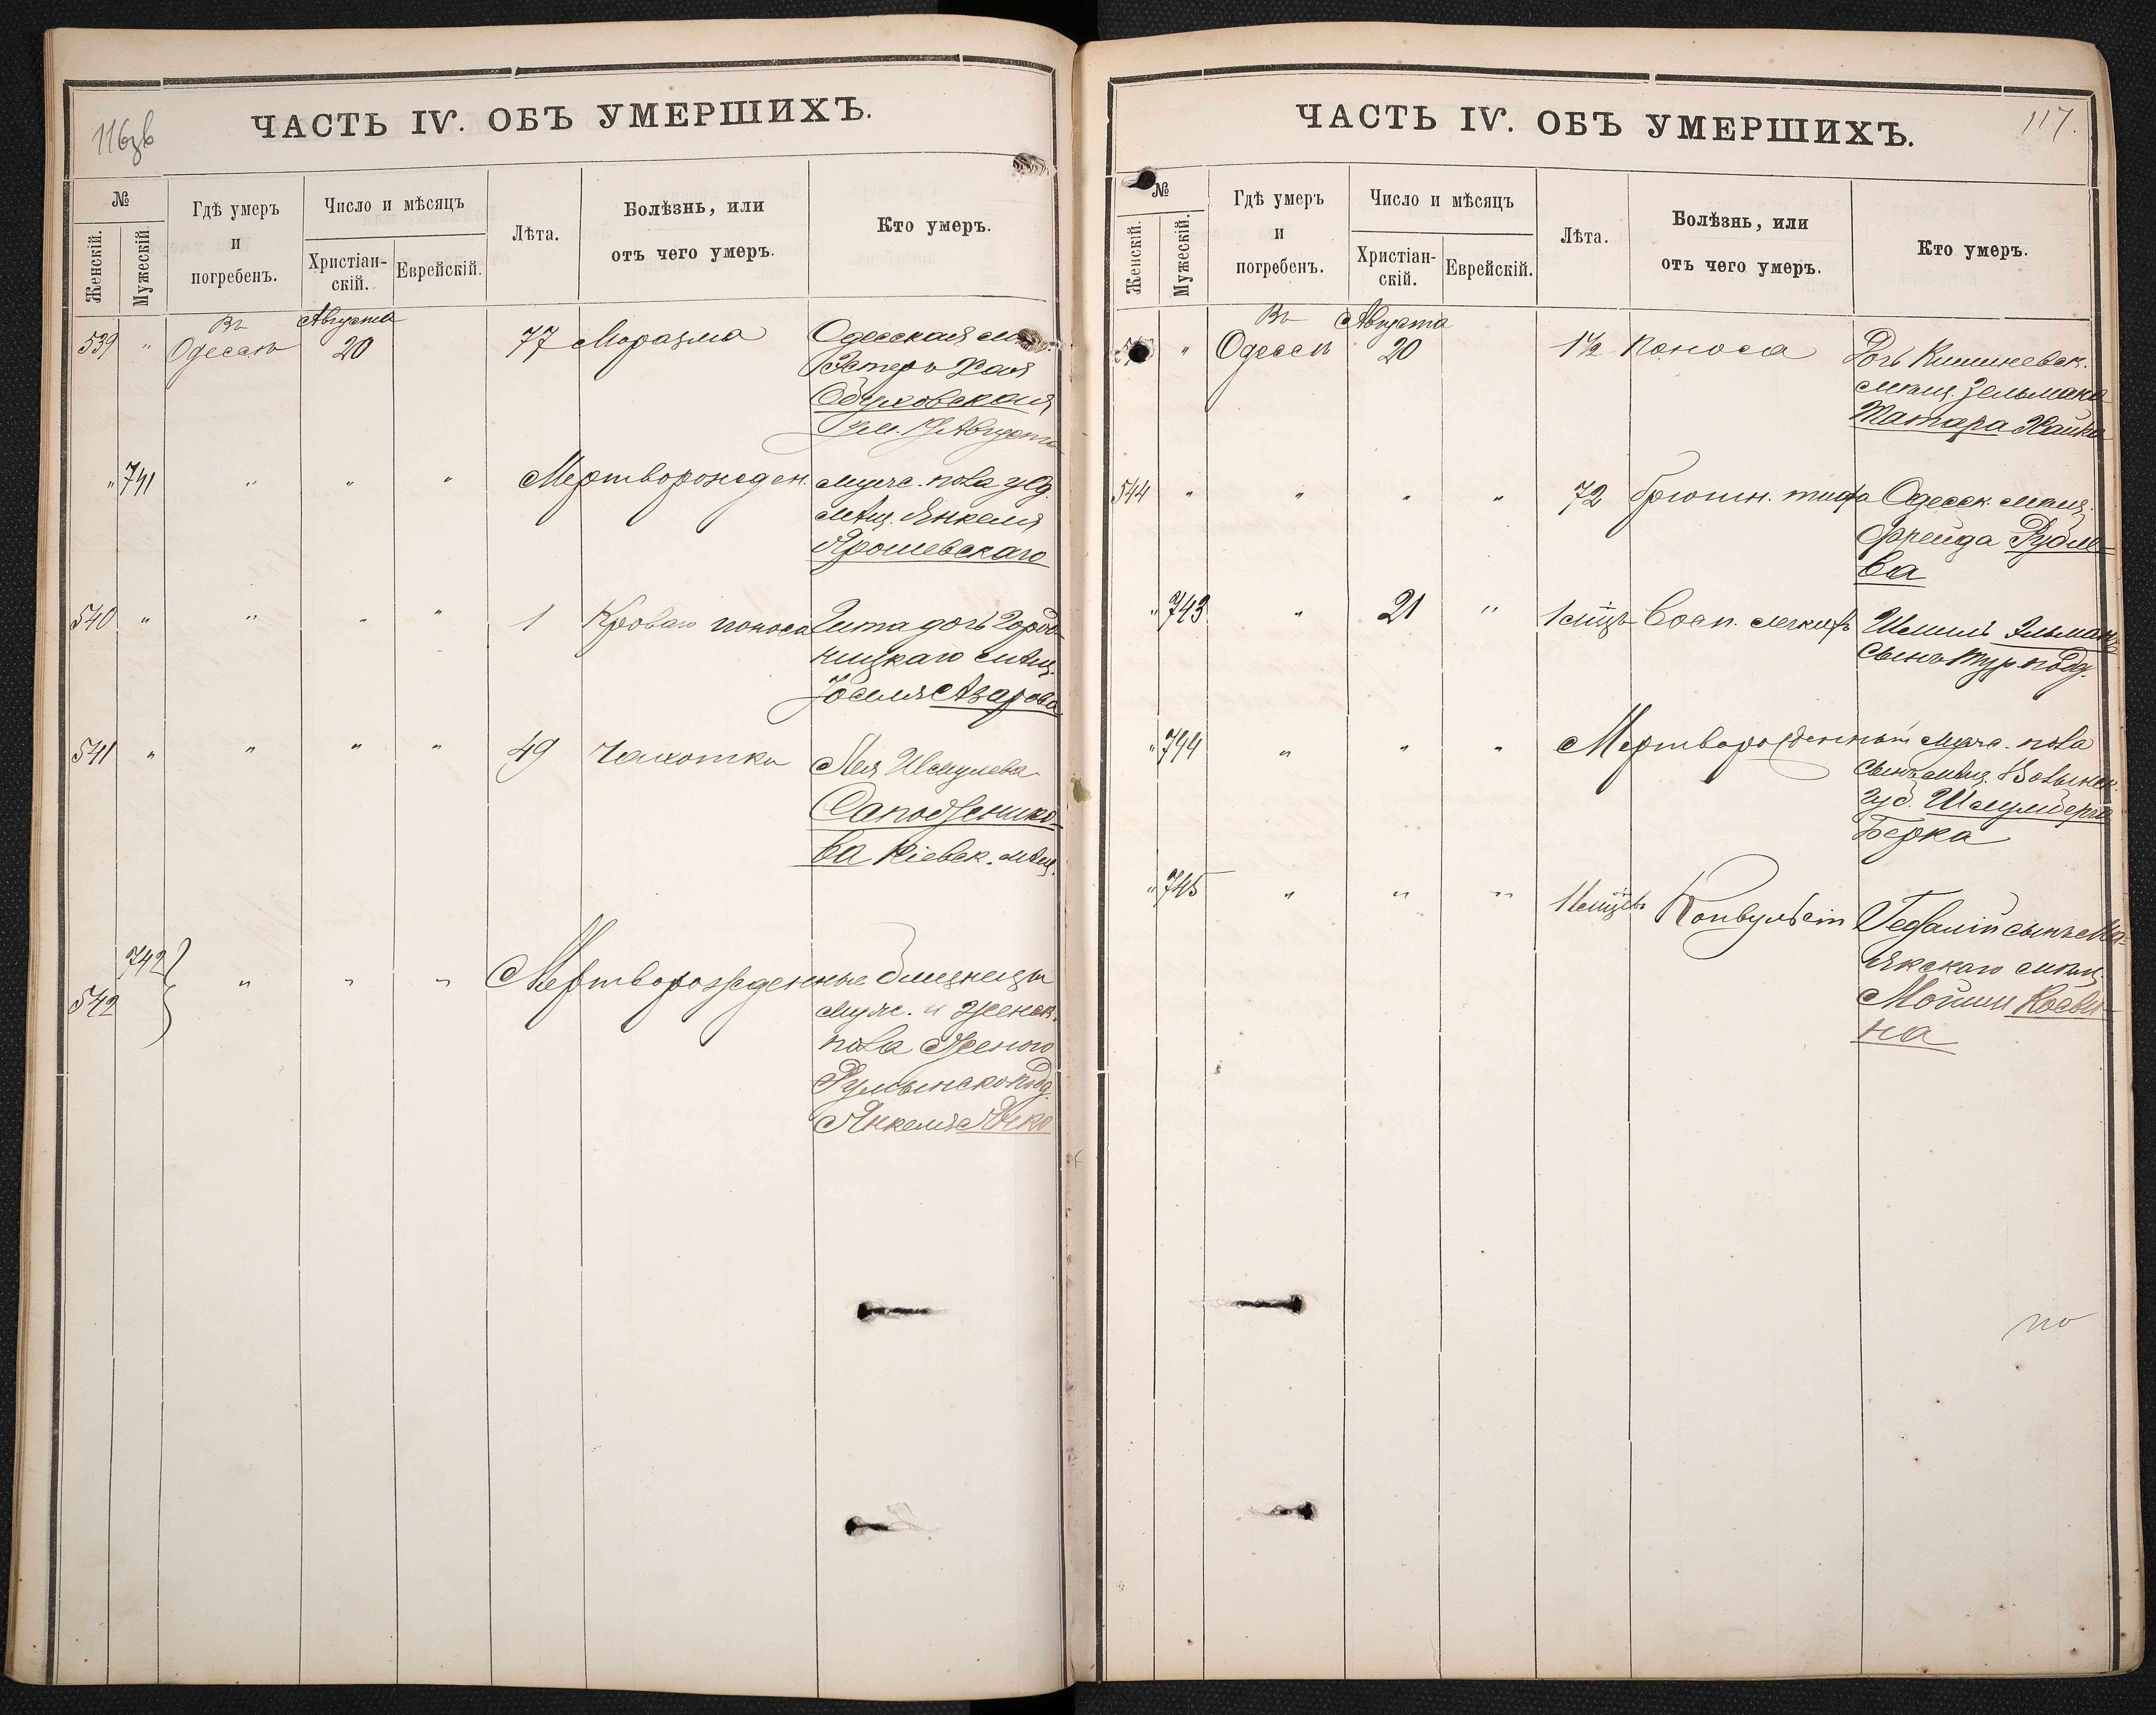 116зв
ЧАСТЬ IV. ОБЪ УМЕРШИХЪ.
№
Женскій.
Мужескій.
Гдѣ умеръ
и
погребенъ.
Число и мѣсяцъ
Христіан-
скій.
Еврейскій.
Лѣта.
Болѣзнь, или
отъ чего умеръ.
Кто умеръ.
539 " Въ Одессѣ Августа 20 77 Маразма Одесская
Эстеръ Хая
Обуховская
Ум. Августа
" 741 " " " Мертворожден. мужс. пола
мѣщ. Янкеля
Ярошевскаго
540 " " " " 1 Кровав поноса Гита дочь Горо-
мѣщ.
Йоселя Азарова
541 " " " " 49 Чахотки Лея Шмулева
Сапожнико-
ва Кіевск. мѣщ.
742
542 } " " " Мертворожденные близнецы
мужс. и женск.
пола
Румынскопод.
Янкеля Янко
117.
ЧАСТЬ IV. ОБЪ УМЕРШИХЪ.
№
Женскій.
Мужескій.
Гдѣ умеръ
и
погребенъ.
Число и мѣсяцъ
Христіан-
скій.
Еврейскій.
Лѣта.
Болѣзнь, или
отъ чего умеръ.
Кто умеръ.
" Въ Одессѣ Августа 20 1½ Поноса Дочь Кишиневск.
мѣщ. Зельмана
Татара Хайка
544 " " " " 72 брюшн. тифа Одесск. мѣщ.
Фрейда Рудле-
ва
" 743 " 21 " 1 мѣц. Восп. легкихъ Шмиль Эльманъ
сынъ Тур. под.
" 744 " " " Мертворожденный мужс. пола
сынъ мѣщ. Волынск.
губ. Шмулберга
Берка
" 745 " " " 11 мѣцевъ Конвульсіи Гедалій сынъ Ма-
якскаго мѣщ.
Мошки Косви-
на